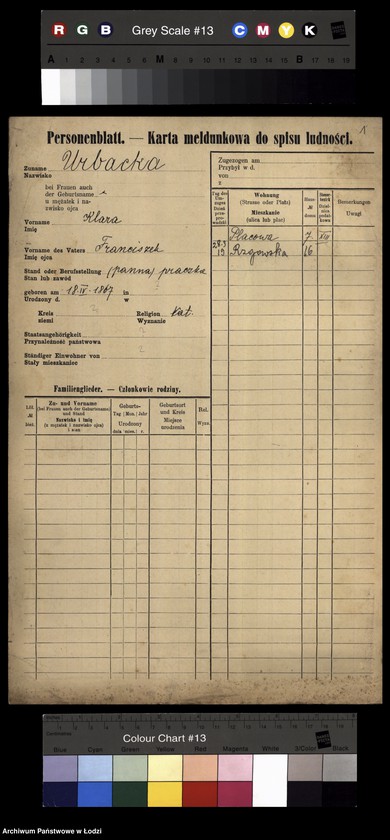 R G B Grey Scale #13 C M Y K
A 1 2 3 4 5 6 M 8 9 10 11 12 13 14 15 B 17 18 19
1
Personenblatt. — Karta meldunkowa do spisu ludności.
Zuname Urbacka
Nazwisko
bei Frauen auch
der Geburtsname
u mężatek i na-
zwisko ojca
Vorname Klara
Imię
Vorname des Vaters Franciszek
Imię ojca
Stand oder Berufsstellung (panna) praczka
Stan lub zawód
geboren am 18.IV.1867 in
Urodzony d. w
Kreis Religion Kat.
ziemi Wyznanie
Staatsangehörigkeit
Przynależność państwowa
Ständiger Einwohner von
Stały mieszkaniec
Zugezogen am
Przybył w d.
von
z
Wohnung
(Strasse oder Platz)
Mieszkanie
(ulica lub plac)
Haus
№
domu
Bemerkungen
Uwagi
Placowa 7 XIII
28.3
19 Rzgowska 16
Familienglieder. — Członkowie rodziny.
Lfd.
№
bież.
Zu- und Vorname
(bei Frauen auch der Geburtsname)
und Stand
Nazwisko i imię
(u mężatek i nazwisko ojca)
i stan
Geburts-
Tag | Mon. | Jahr
Urodzony
dnia | mies. | r.
Geburtsort
und Kreis
Miejsce
urodzenia
Rel.
Wyzn.
Colour Chart #13
Blue Cyan Green Yellow Red Magenta White 3/Color Black
Archiwum Państwowe w Łodzi